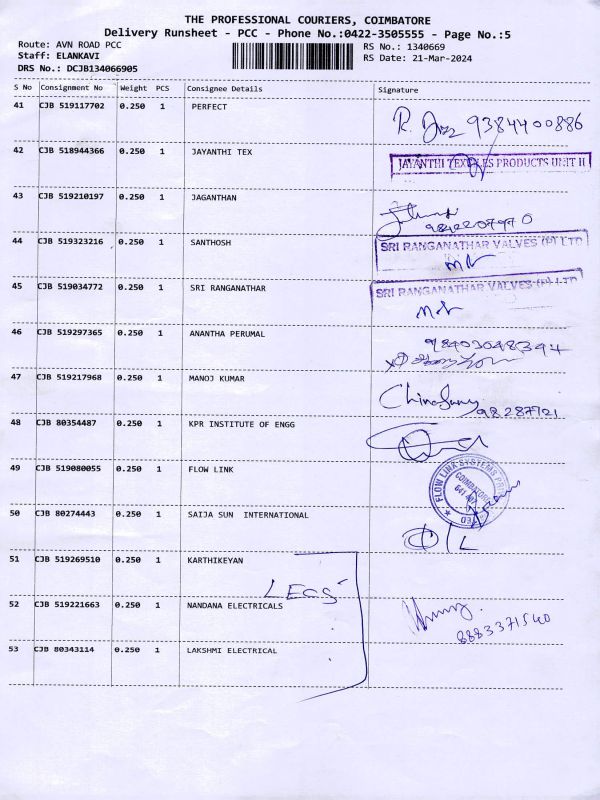 THE PROFESSIONAL COURIERS, COIMBATORE
Delivery Runsheet - PCC - Phone No.:0422-3505555 - Page No.:5
Route: AVN ROAD PCC RS No.: 1340669
Staff: ELANKAVI RS Date: 21-Mar-2024
DRS No.: DCJB134066905
S No Consignment No Weight PCS Consignee Details Signature
41 CJB 519117702 0.250 1 PERFECT
9384400886
42 CJB 518944366 0.250 1 JAYANTHI TEX
JAYANTHI TEXTILES PRODUCTS UNIT II
43 CJB 519210197 0.250 1 JAGANTHAN
9842207970
44 CJB 519323216 0.250 1 SANTHOSH
SRI RANGANATHAR VALVES (P) LTD
45 CJB 519034772 0.250 1 SRI RANGANATHAR
SRI RANGANATHAR VALVES (P) LTD
46 CJB 519297365 0.250 1 ANANTHA PERUMAL
47 CJB 519217968 0.250 1 MANOJ KUMAR
98287721
48 CJB 80354487 0.250 1 KPR INSTITUTE OF ENGG
49 CJB 519080055 0.250 1 FLOW LINK
FLOW LINK SYSTEMS
COIMBATORE
50 CJB 80274443 0.250 1 SAIJA SUN INTERNATIONAL
51 CJB 519269510 0.250 1 KARTHIKEYAN
52 CJB 519221663 0.250 1 NANDANA ELECTRICALS
8883371540
53 CJB 80343114 0.250 1 LAKSHMI ELECTRICAL